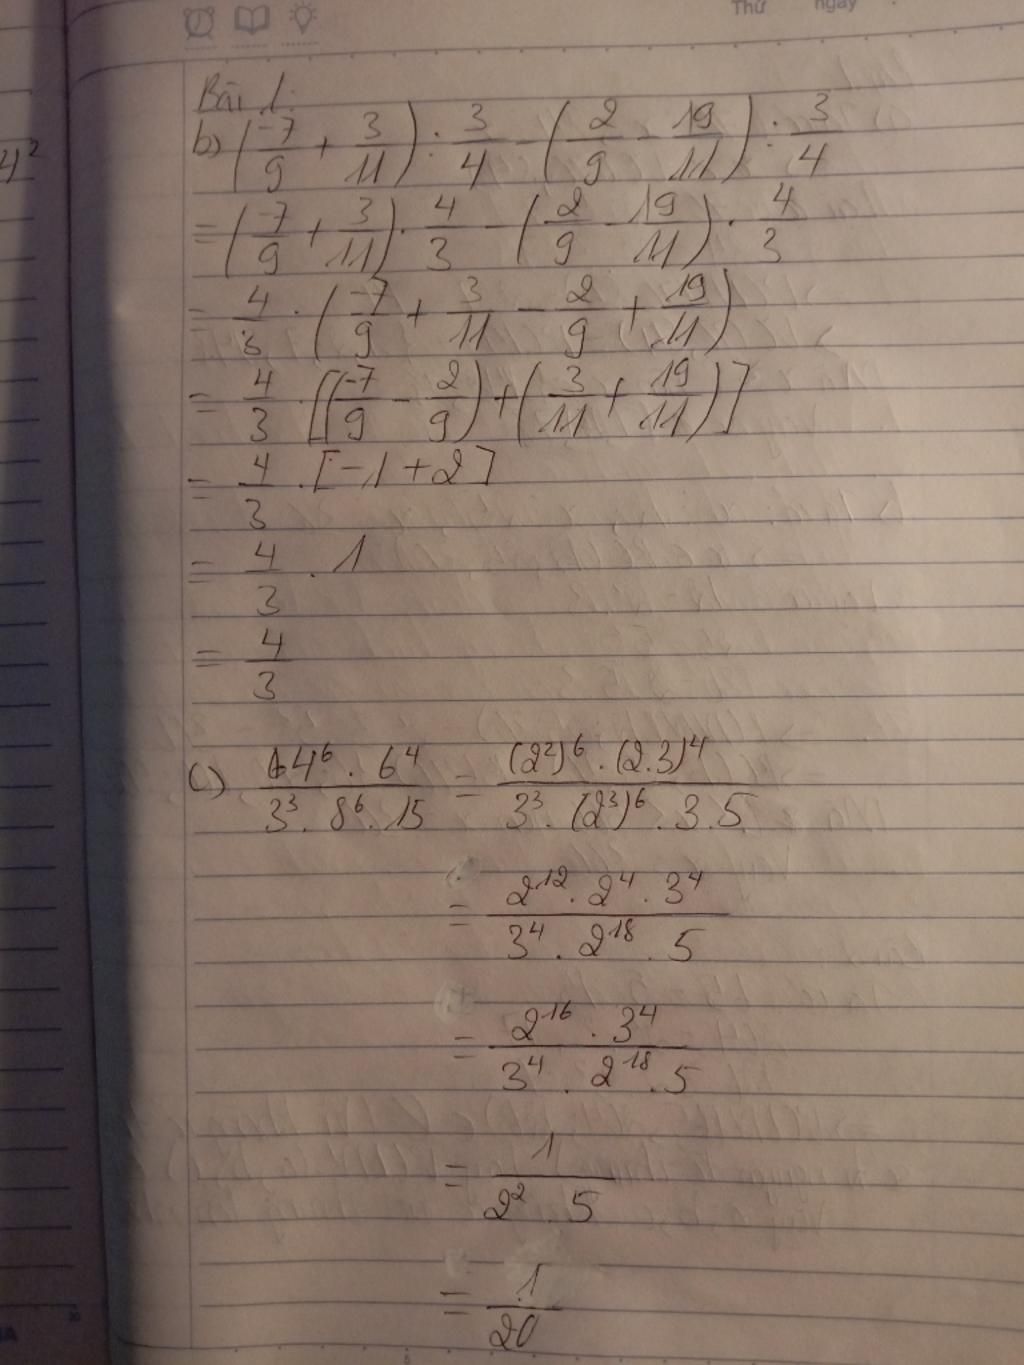 Thứ ngày
4²
Bài 1:
b) (-7/9 + 3/11) : 3/4 - (2/9 - 19/11) : 3/4
= (-7/9 + 3/11) . 4/3 - (2/9 - 19/11) . 4/3
= 4/3 . (-7/9 + 3/11 - 2/9 + 19/11)
= 4/3 . [(-7/9 - 2/9) + (3/11 + 19/11)]
= 4/3 . [-1 + 2]
= 4/3 . 1
= 4/3
c) 4⁶ . 6⁴ / 3³ . 8⁶ . 15 = (2²)⁶ . (2.3)⁴ / 3³ . (2³)⁶ . 3 . 5
= 2¹² . 2⁴ . 3⁴ / 3⁴ . 2¹⁸ . 5
= 2¹⁶ . 3⁴ / 3⁴ . 2¹⁸ . 5
= 1 / 2² . 5
= 1/20